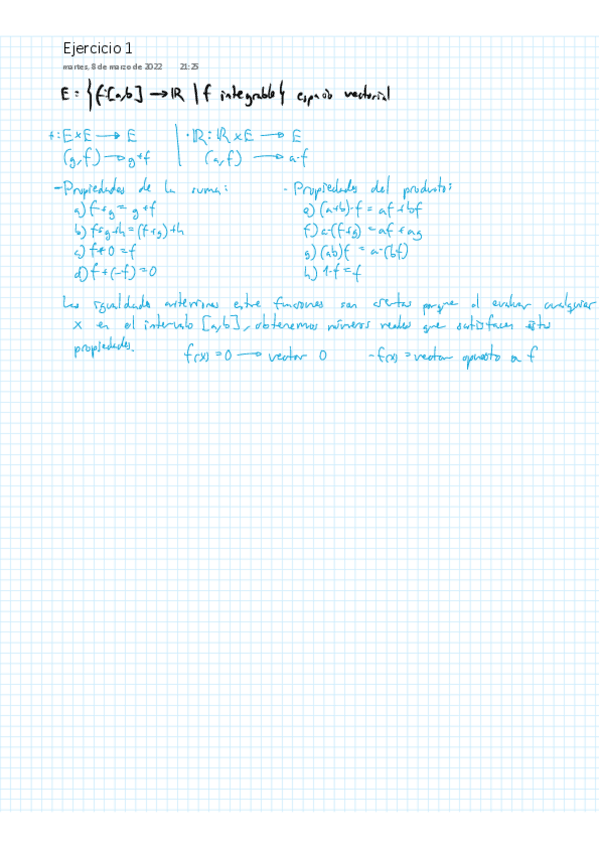 Ejercicio 1
martes, 8 de marzo de 2022 21:25
E = {f:[a,b] → IR | f integrable} espacio vectorial
+: E×E → E | ·IR: IR×E → E
(g,f) → g+f (a,f) → a·f
- Propiedades de la suma: - Propiedades del producto:
a) f+g = g+f e) (a+b)·f = af+bf
b) f+g+h = (f+g)+h f) a·(f+g) = af+ag
c) f+0 = f g) (ab)f = a·(bf)
d) f+(-f) = 0 h) 1·f = f
Las igualdades anteriores entre funciones son ciertas porque al evaluar cualquier
x en el intervalo [a,b], obtenemos números reales que satisfacen estas
propiedades.
f(x) = 0 → vector 0 -f(x) = vector opuesto a f